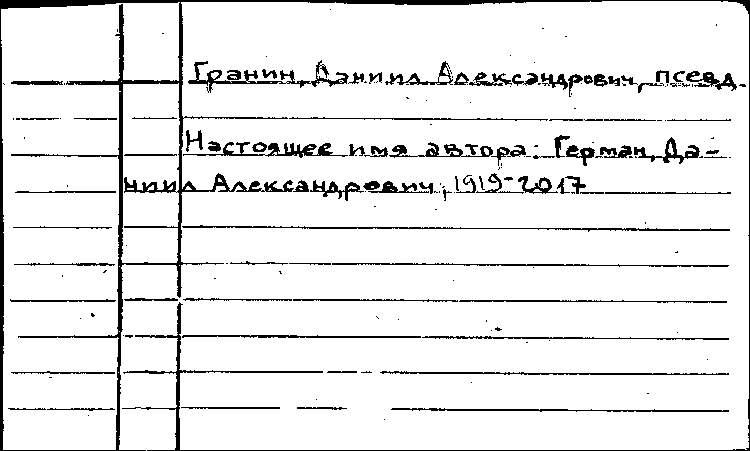 Гранин, Даниил Александрович, псевд.
Настоящее имя автора: Герман, Да-
ниил Александрович, 1919-2017